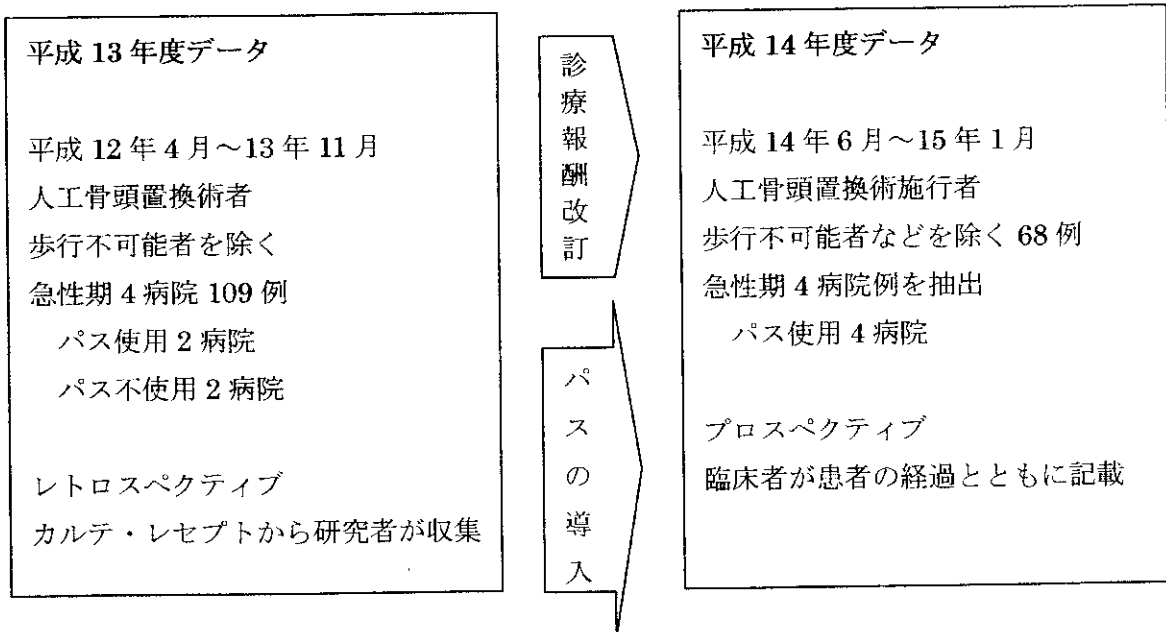 平成 13 年度データ
平成 12 年 4 月～13 年 11 月
人工骨頭置換術者
歩行不可能者を除く
急性期 4 病院 109 例
パス使用 2 病院
パス不使用 2 病院
レトロスペクティブ
カルテ・レセプトから研究者が収集
診療報酬改訂
パスの導入
平成 14 年度データ
平成 14 年 6 月～15 年 1 月
人工骨頭置換術施行者
歩行不可能者などを除く 68 例
急性期 4 病院例を抽出
パス使用 4 病院
プロスペクティブ
臨床者が患者の経過とともに記載